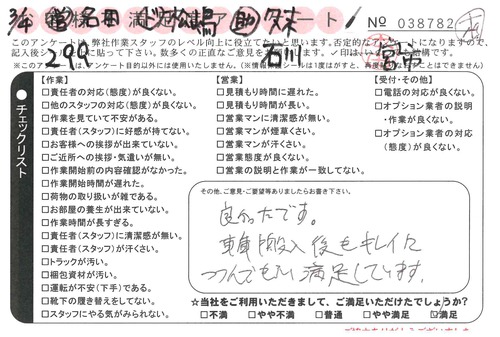 お客様満足度アンケート
No 038782
このアンケートは、弊社作業スタッフのレベル向上に役立てたいと思います。否定的なアンケートになりますので、
299
石川
宮市
【作業】
□責任者の対応(態度)が良くない。
□他のスタッフの対応(態度)が良くない。
□作業を見ていて不安がある。
□責任者(スタッフ)に好感が持てない。
□お客様への挨拶が出来ていない。
□ご近所への挨拶・気遣いが無い。
□作業開始前の内容確認がなかった。
□作業開始時間が遅れた。
□荷物の取り扱いが雑である。
□お部屋の養生が出来ていない。
□作業時間が長すぎる。
□責任者(スタッフ)に清潔感が無い。
□責任者(スタッフ)が汗くさい。
□トラックが汚い。
□梱包資材が汚い。
□運転が不安(下手)である。
□靴下の履き替えをしてない。
□スタッフにやる気がみられない。
【営業】
□見積もり時間に遅れた。
□見積もり時間が長い。
□営業マンに清潔感が無い。
□営業マンが煙草くさい。
□営業マンが汗くさい。
□営業態度が良くない。
□営業の説明と作業が一致してない。
【受付・その他】
□電話の対応が良くない。
□オプション業者の説明
・作業が良くない。
□オプション業者の対応
(態度)が良くない。
チェックリスト
その他、ご意見・ご要望等ありましたらお書き下さい。
良かったです。
搬入後もキレイに
満足しています。
☆当社をご利用いただきまして、ご満足いただけたでしょうか?
□不満 □やや不満 □普通 □やや満足 ☑満足